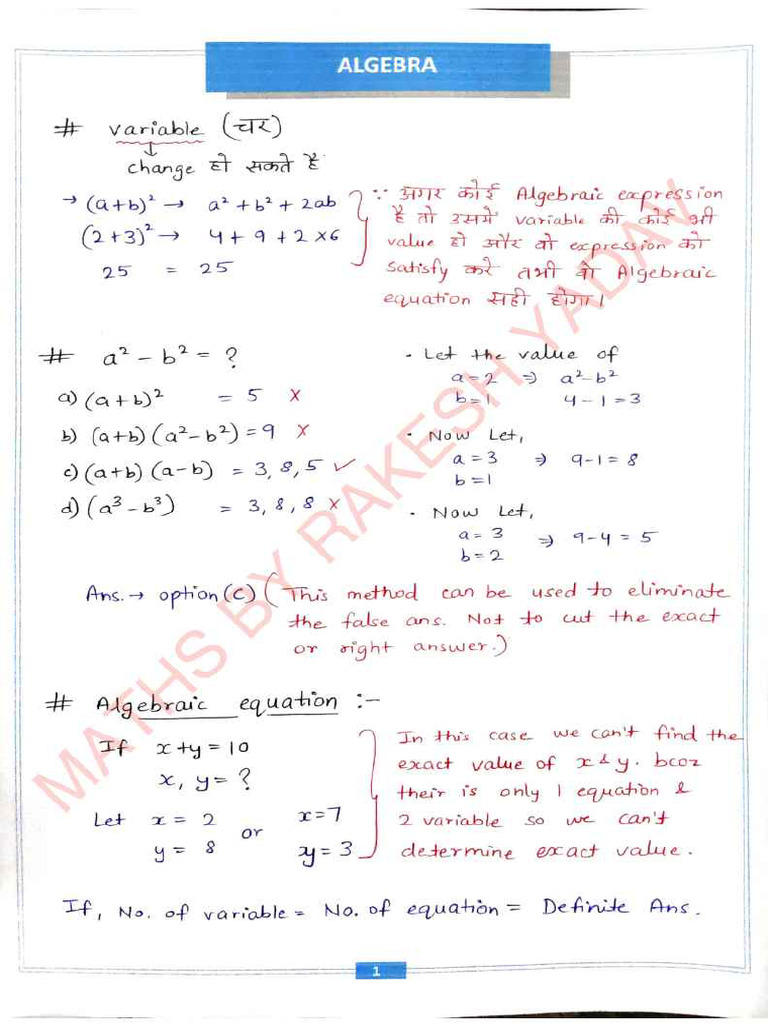 ALGEBRA
# variable (चर)
↓
change हो सकते है
→ (a+b)² → a² + b² + 2ab
(2+3)² → 4 + 9 + 2×6
25 = 25
∵ अगर कोई Algebraic expression
है तो उसमें variable की कोई भी
value हो और वो expression को
satisfy करे तभी वो Algebraic
equation सही होगा।
# a² - b² = ?
a) (a+b)² = 5 ×
b) (a+b) (a²-b²) = 9 ×
c) (a+b) (a-b) = 3, 8, 5 ✓
d) (a³ - b³) = 3, 8, 8 ×
· Let the value of
a=2 ⇒ a²-b²
b=1 4-1=3
· Now Let,
a=3 ⇒ 9-1=8
b=1
· Now Let,
a=3 ⇒ 9-4=5
b=2
Ans. → option (c) (This method can be used to eliminate
the false ans. Not to cut the exact
or right answer.)
# Algebraic equation :-
If x+y=10
x, y= ?
Let x=2 or x=7
y=8 xy=3
In this case we can't find the
exact value of x & y. bcoz
their is only 1 equation &
2 variable so we can't
determine exact value.
If, No. of variable = No. of equation = Definite Ans.
1
MATHS BY RAKESH YADAV